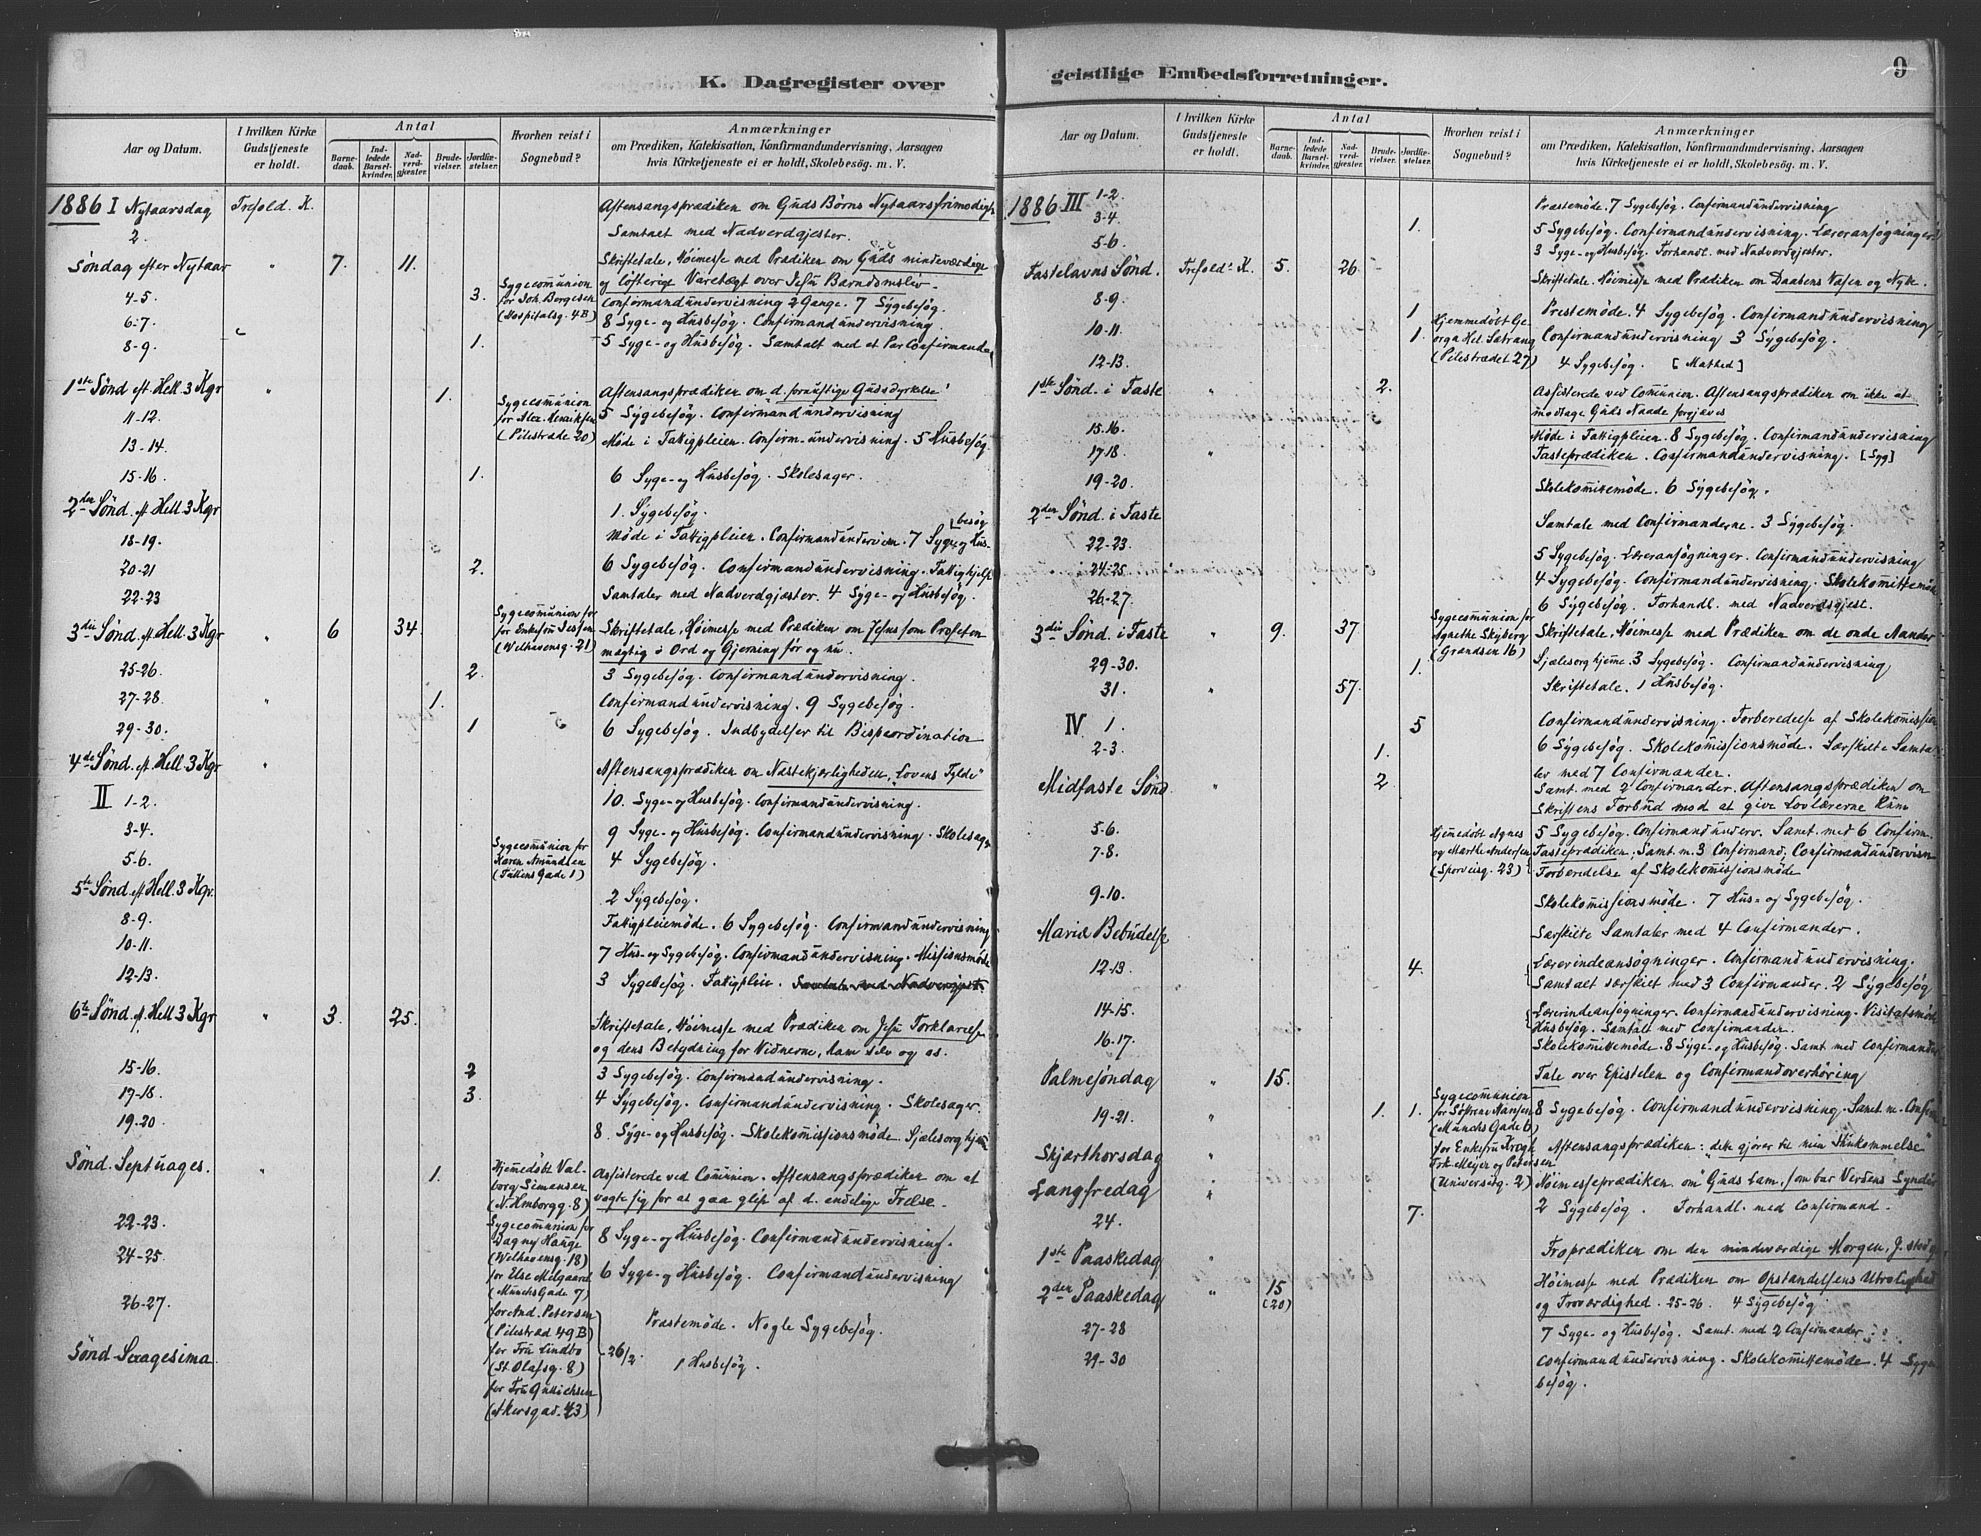 K. Dagregister over
Aar og Datum.
I hvilken Kirke Gudstjeneste er holdt.
Antal
Barnedaab.
Indledede Barselkvinder.
Nadverdgjester.
Brudevielser.
Jordfæstelser.
Hvorhen reist i Sognebud?
Anmærkninger
om Prædiken, Katekisation, Konfirmandundervisning, Aarsagen
hvis Kirketjeneste ei er holdt, Skolebesög. m. V.
1886 I Nytaarsdag Trefold. K. Aftensangsprædiken om Guds Börns Nytaarsfrimodigh
2. Samtalt med Nadverdgjester.
Söndag efter Nytaar " 7. 11. Skriftetale, Höimesse med Prædiken om Guds mindeværdige
og löfterige Varetægt over Jesu Barndomsliv.
4-5. 3. Sygecommunion for Joh. Borgesen (Hospitalsg. 4B) Confirmandundervisning 2 Gange. 7 Sygebesög.
6-7. 8 Syge- og Husbesög. Confirmandundervisning.
8-9. 1. 5 Syge- og Husbesög. Samtalt med et Par Confirmander
1ste Sönd. ft. Hell. 3 Kgr " 1. Aftensangsprædiken om d. fornuftige Gudsdyrkelse!
11-12. Sygecommunion for Alex. Henriksen (Pilestræde 20) 5 Sygebesög. Confirmandundervisning
13-14. Möde i Fattigpleien. Confirm.undervisning. 5 Husbesög.
15-16. 1. 6 Syge- og Husbesög. Skolesager.
2den Sönd. ft. Hell. 3 Kgr 1. Sygebesög.
18-19. Möde i Fattigpleien. Confirmandundervisn. 7 Syge- og Husbesög
20-21 2. 6 Sygebesög. Confirmandundervisning. Fattighjelp
22-23 Samtaler med Nadverdgjester. 4 Syge- og Husbesög.
3die Sönd. ft. Hell. 3 Kgr " 6 34. Sygecommunion for for Enkefru Jessen (Welhavensg. 21) Skriftetale, Höimesse med Prædiken om Jesus som Profeten
mægtig i Ord og Gjerning för og nu.
25-26. 2. 3 Sygebesög. Confirmandundervisning.
27-28. " 1. Confirmandundervisning. 9 Sygebesög.
29-30. 1 6 Sygebesög. Indbydelser til Bispeordination
4de Sönd. ft. Hell. 3 Kgr Aftensangsprædiken om Næstekjærligheden „Lovens Fylde"
II 1-2. 10. Syge- og Husbesög. Confirmandundervisning.
3-4. 9 Syge- og Husbesög. Confirmandundervisning. Skolesag.
5-6. Sygecommunion for Karen Amundsen (Tullins Gade 1) 4 Sygebesög.
5te Sönd. ft. Hell. 3 Kgr. 2 Sygebesög.
8-9. Fattigpleiemöde. 6 Sygebesög. Confirmandundervisning
10-11. 7 Hus- og Sygebesög. Confirmandundervisning. Missionsmöde
12-13. 3 Sygebesög. Fattigpleie. Samtale med Nadvergjest.
6te Sönd. ft. Hell. 3 Kgr " 3. 25. Skriftetale, Höimesse med Prædiken om Jesu Forklarelse
og dens Betydning for Vidnerne, ham selv og os.
15-16. 2 3 Sygebesög. Confirmandundervisning.
17-18. 3. 4 Sygebesög. Confirmandundervisning. Skolesager.
19-20. 8. Syge- og Husbesög. Skolekommissionsmöde. Sjælesorg hjem
Sönd. Septuages. " 1. Hjemmedöbt Valborg Simensen (N. Homborgg. 8) Assisterede ved Communion. Aftensangsprædiken om at
vogte sig for at gaa glip af d. endelige Frelse.
22-23. Sygecommunion for Dagny Hauge (Welhavensg. 18) 8 Syge- og Husbesög. Confirmandundervisning.
24-25. for Else Melgaard (Munchs Gade 7) 6 Syge- og Husbesög. Confirmandundervisning
26-27. for And. Petersen (Pilestræd 49B) Præstemöde. Nogle Sygebesög.
Sönd. Sexagesima. for Fru Lindbo (St. Olafsg. 8) 26/2. 1 Husbesög.
for Fru Gulichsen (Akersgad. 43)
geistlige Embedsforretninger.
9
Aar og Datum.
I hvilken Kirke Gudstjeneste er holdt.
Antal
Barnedaab.
Indledede Barselkvinder.
Nadverdgjester.
Brudevielser.
Jordfæstelser.
Hvorhen reist i Sognebud?
Anmærkninger
om Prædiken, Katekisation, Konfirmandundervisning, Aarsagen
hvis Kirketjeneste ei er holdt, Skolebesög. m. V.
1886 III 1-2. Præstemöde. 7 Sygebesög. Confirmandundervisning
3-4. 1. 5 Sygebesög. Confirmandundervisning. Læreransögninger
5-6. 3 Syge- og Husbesög. Forhandl. med Nadverdgjester.
Fastelavns Sönd. Trefold. K. 5. 26 Skriftetale. Höimesse med Prædiken om Daabens Væsen og Nytte.
8-9. 1 Præstemöde. 4 Sygebesög. Confirmandundervisning
10-11. 1. Hjemmedöbt Georg Hel. Satrang (Pilestrædet 27) Confirmandundervisning 3 Sygebesög.
12-13. 4 Sygebesög. [Mathed]
1ste Sönd. i Faste " 2. Assisterede ved Communion. Aftensangsprædiken om ikke at
modtage Guds Naade forgjæves
15-16. Möde i Fattigpleien. 8 Sygebesög. Confirmandundervisning
17-18. " Fasteprædiken. Confirmandundervisning. [Syg]
19-20. Skolekomitemöde. 6 Sygebesög.
2den Sönd. i Faste Samtale med Confirmanderne. 3 Sygebesög.
22-23. 5 Sygebesög. Læreransögninger. Confirmandundervisning
24-25. 4 Sygebesög. Confirmandundervisning. Skolekomittemöde
26-27. 6 Sygebesög. Forhandl. med Nadverdgjest.
3die Sönd. i Faste " 9. 37 Sygecommunion for Agnethe Skyberg (Grændsen 16) Skriftetale, Höimesse med Prædiken om de onde Aander
29-30. 1. Sjælesorg hjemme. 3 Sygebesög. Confirmandundervisning
31. " 57. Skriftetale. 1 Husbesög.
IV 1. 5 Confirmandundervisning. Forberedelse af Skolekommission
2-3. 1. 6 Sygebesög. Skolekomissionsmöde. Særskilte Samtaler med 7 Confirmander.
Midfaste Sönd " 2 Samt. med 2 Confirmander. Aftensangsprædiken om
Skriftens Forbud mod at give Lovlærerne Rum
5-6. Hjemmedöbt Agnes og Marthe Andersen (Sporveisg. 23) 5 Sygebesög. Confirmandunderv. Samt. med 6 Confirm.
7-8. Fasteprædiken, Samt. m. 3 Confirmand, Confirmandundervisn
Forberedelse af Skolekomissionsmöde
9-10. Skolekomissionsmöde. 7 Hus- og Sygebesög.
Mariæ Bebudelse Særskilte Samtaler med 4 Confirmander.
12-13. 4. Lærerindeansögninger. Confirmandundervisning.
Samtalt særskilt med 3 Confirmander. 2 Sygebesög
14-15. Lærerindeansögninger. Confirmandundervisning. Visitatsmöde
Husbesög. Samtale med Confirmander.
16-17. Skolekomittemöde. 8 Syge- og Husbesög. Samt med Confirmander
Palmesöndag " 15. Tale over Epistelen og Confirmandoverhöring
19-21. " 1. 1. Sygecommunion for Söfrene Hansen (Munchs Gade 6) 8 Sygebesög. Confirmandundervisning. Samt. m. Confirm
Skjærthorsdag " for Enkefru Krogh Frk. Meyer og Petersen (Universitg. 2) Aftensangsprædiken: „dette gjörer til min Ihukommelse"
Langfredag " Höimesseprædiken om „Guds Lam, som bar Verdens Synder
24. 7. 2 Sygebesög. Forhandl. med Confirmand.
1ste Paaskedag " Froprædiken om den mindeværdige Morgen, J. stod op
2den Paaskedag " 15 (20) Höimesse med Prædiken om Opstandelsens Utrolighed
og Troværdighed. 25-26. 4 Sygebesög
27-28 7 Syge- og Husbesög. Samt. med 2 Confirmander
29-30 Confirmandundervisning. Skolekomittemöde. 4 Sygebesög.